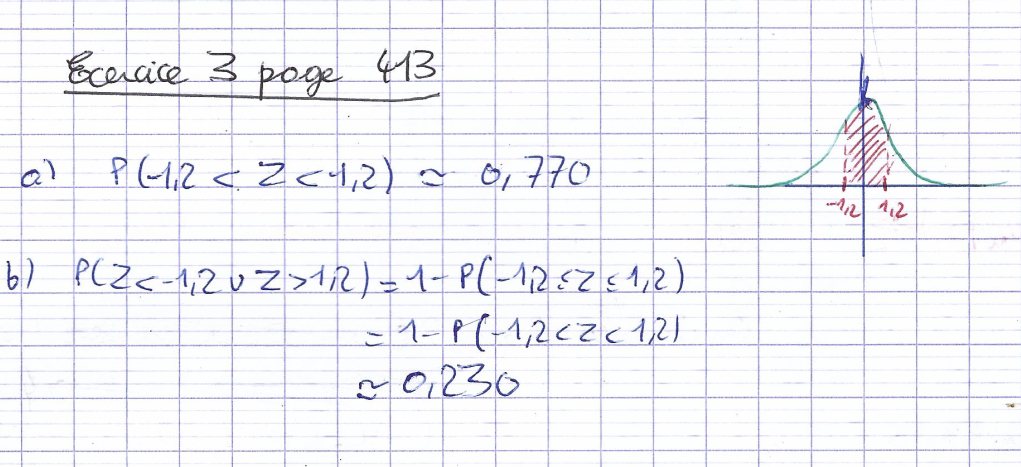 Exercice 3 page 413
a) P(-1,2 < Z < 1,2) ≈ 0,770
-1,2 1,2
b) P(Z < -1,2 ∪ Z > 1,2) = 1 - P(-1,2 ≤ Z ≤ 1,2)
= 1 - P(-1,2 < Z < 1,2)
≈ 0,230